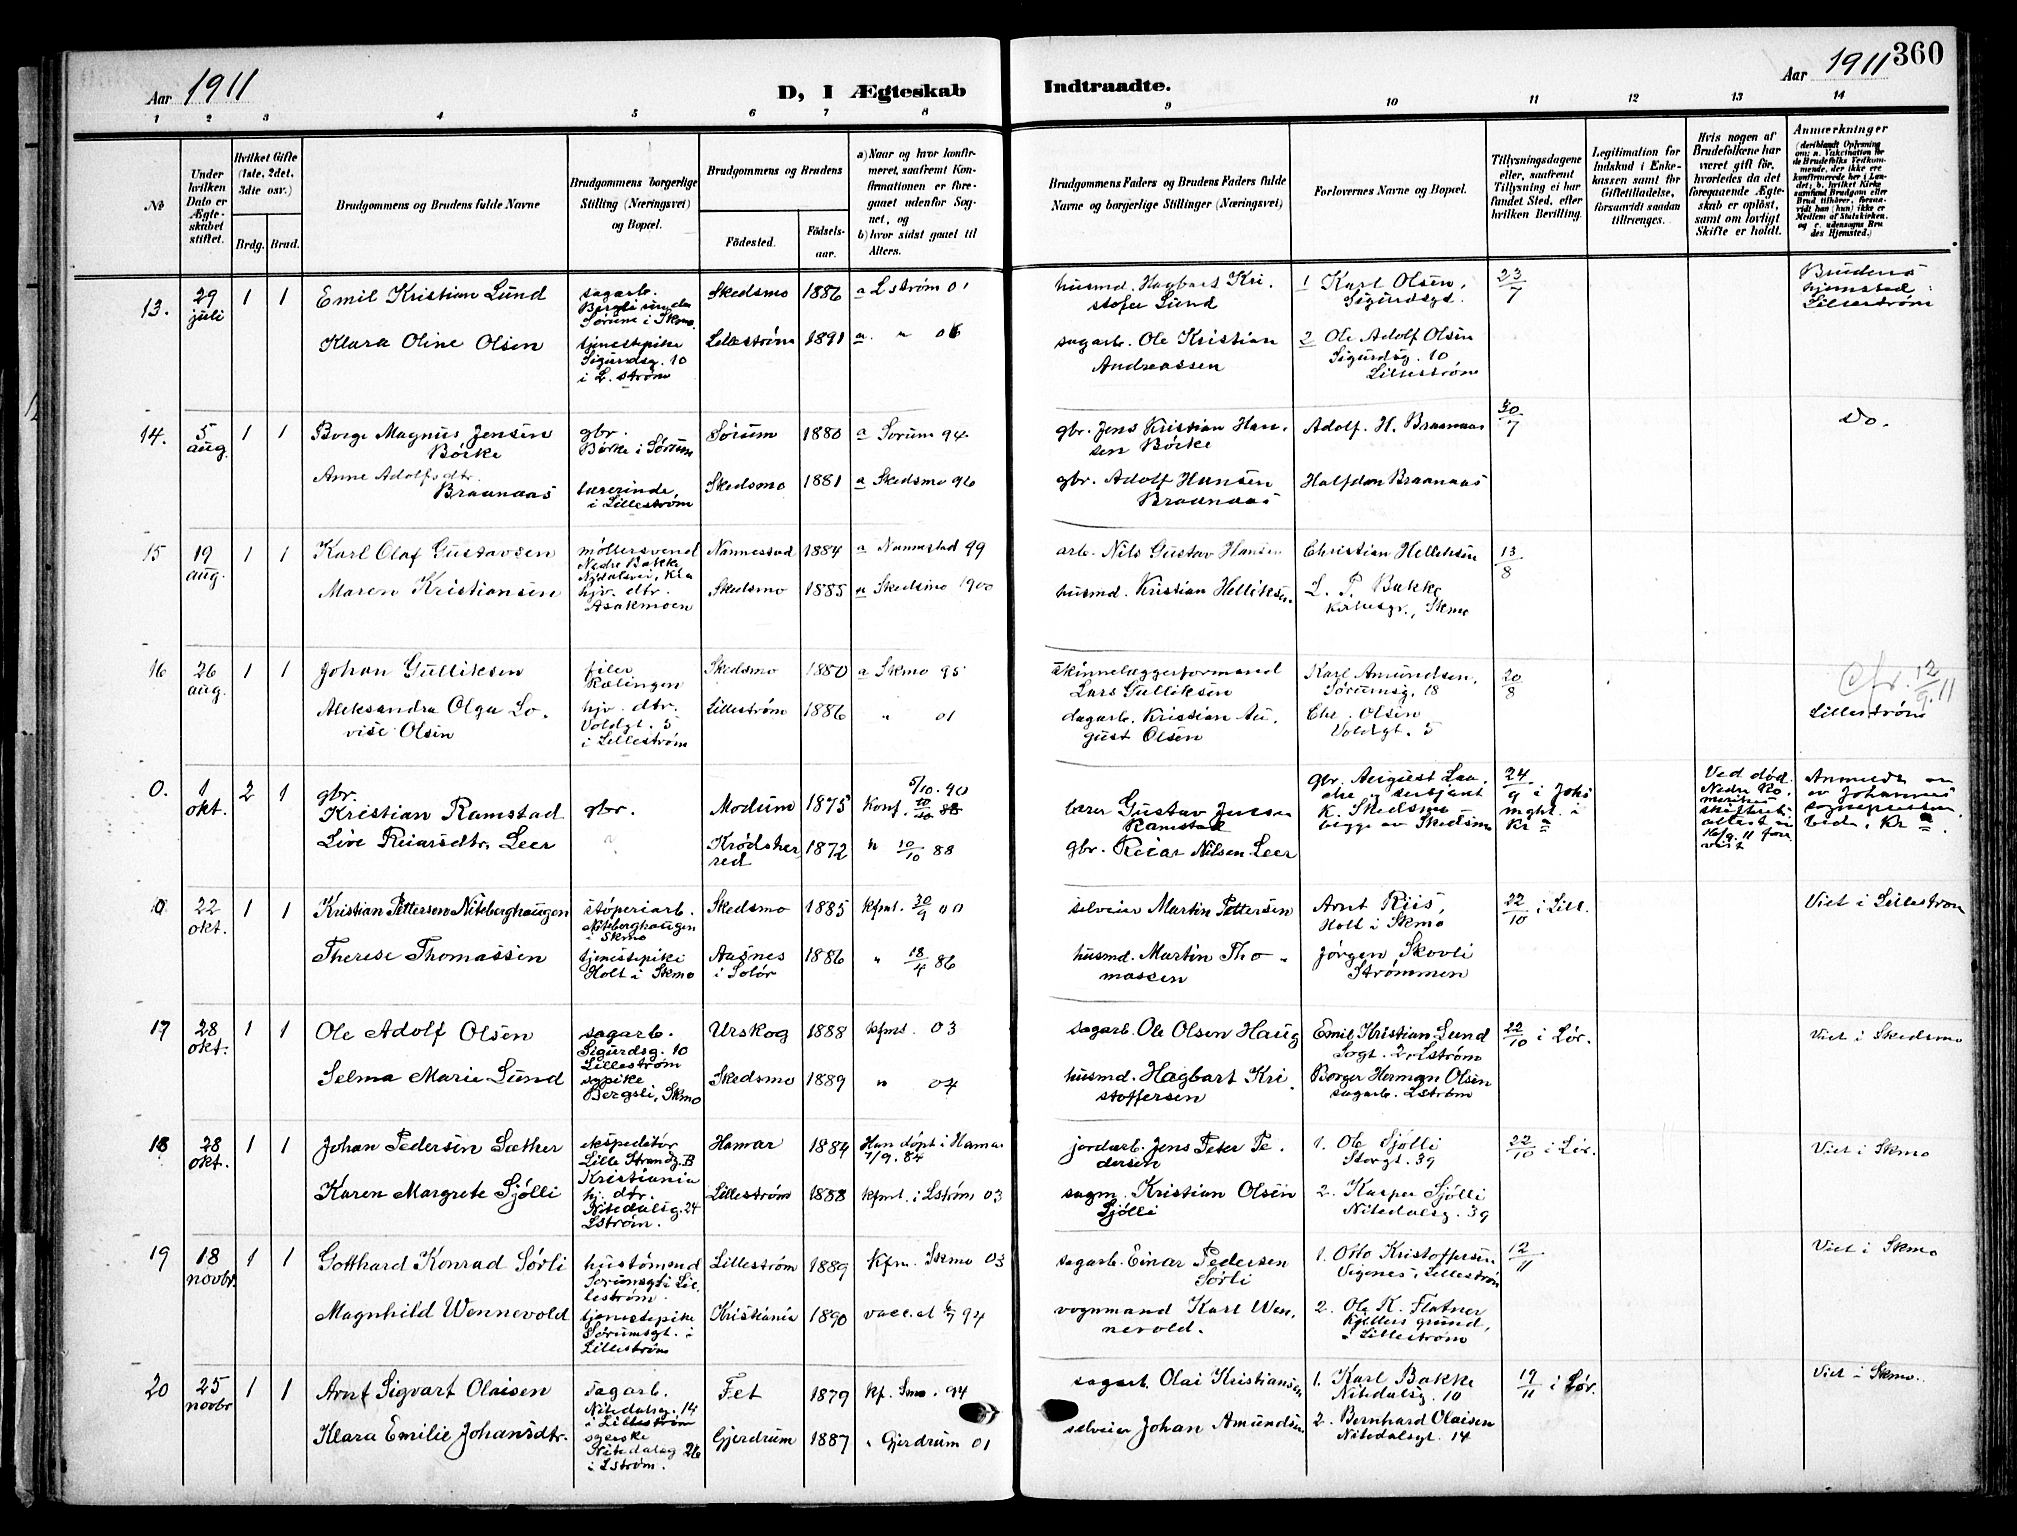 Aar 1911
D, I Ægteskab
Indtraadte.
Aar 1911
360
1 2 3 4 5 6 7 8
9 10 11 12 13 14
No
Under hvilken Dato er Ægteskabet stiftet.
Hvilket Gifte (1ste, 2det, 3dte osv.)
Brdg. Brud.
Brudgommens og Brudens fulde Navne
Brudgommens borgerlige Stilling (Næringsvei) og Bopæl.
Brudgommens og Brudens
Födested.
Födselsaar.
a) Naar og hvor konfirmeret, saafremt Konfirmationen er foregaaet udenfor Sognet, og
b) hvor sidst gaaet til Alters.
Brudgommens Faders og Brudens Faders fulde Navne og borgerlige Stillinger (Næringsvei)
Forlovernes Navne og Bopæl.
Tillysningsdagene eller, saafremt Tillysning ei har fundet Sted, efter hvilken Bevilling.
Legitimation for Indskud i Enkekassen samt for Giftetilladelse, forsaavidt saadan tiltrænges.
Hvis nogen af Brudefolkene har været gift för, hvorledes da det foregaaende Ægteskab er oplöst, samt om lovligt Skifte er holdt.
Anmærkninger
13. 29 juli 1 1 Emil Kristian Lund
sagarb.
Sørum i Skmo
Skedsmo 1886 a Lstrøm 01
husmd. Hagbart Kristofer Lund
1 Karl Olsen, Sigurdsgt.
23/7
Brudens hjemsted: Lillestrøm
Klara Oline Olsen
tjenestepike Sigurdsg. 10 i L.strøm
Lillestrøm 1891 a. " 06
sagarb. Ole Kristian Andreassen
2 Ole Adolf Olsen Sigurdsg. 10, Lillestrøm
14. 5 aug. 1 1 Borge Magnus Jensen Børke
gbr. Børke i Sørum
Sørum 1880 a Sørum 94
gbr. Jens Kristian Hansen Børke
Adolf. H. Braanaas
30/7
Do.
Anne Adolfsdtr. Braanaas
lærerinde i Lillestrøm
Skedsmo 1881 a Skedsmo 96
gbr. Adolf Hansen Braanaas
Halfdan Braanaas
15 19 aug. 1 1 Karl Olaf Gustavsen
møllersvend Nedre Bakke, Nydalsvei, Kra
Nannestad 1884 a Nannestad 99
arb. Nils Gustav Hansen
Christian Helleksen
13/8
Maren Kristiansen
hjv. dtr. Asakmoen
Skedsmo 1885 a Skedsmo 1900
husmd. Kristian Helliksen.
L. P. Bakke
16 26 aug. 1 1 Johan Gulliksen
filer Rælingen
Skedsmo 1880 a Skmo 95
skinnelæggerformand Lars Gulliksen
Karl Amundsen, Sørumsg. 18
20/8
Cfr. 12/9.11
Lillestrøm
Aleksandra Olga Lovise Olsen
hjv. dtr. Voldgt. 5 i Lillestrøm
Lillestrøm 1886 " 01
dagarb. Kristian August Olsen
Chr. Olsen Voldgt. 5
0. 1 okt. 2 1 gbr. Kristian Ramstad
gbr.
Modum 1875 Konf. 5/10.90
lærer Gustav Jensen Ramstad
24/9 i Johs mght. i Kr a
Live Reiarsdtr. Leer
Krødsherred 1872 " 10/10 88
gbr. Reiar Nilsen Leer
0 22 okt. 1 1 Kristian Pettersen Niteberghaugen
støperiarb. Niteberghaugen i Skmo
Skedsmo 1885 kfmt. 30/9 00
selveier Martin Pettersen
Arnt Riis, Holt i Skmo
22/10 i Lill.
Viet i Lillestrøm
Therese Thomassen
tjenestepike Holt i Skmo
Aasnes i Solør 1886 " 18/4 86
husmd. Martin Thomassen
Jørgen Skovli Strømmen
17 28 okt. 1 1 Ole Adolf Olsen
sagarb. Sigurdsg. 10 Lillestrøm
Urskog 1888 kfmt. 03
sagarb. Ole Olsen Haug
Emil Kristian Lund
22/10 i Lør.
Viet i Skedsmo
Selma Marie Lund
sypike Bergsli, Skmo
Skedsmo 1889 " 04
husmd. Hagbart Kristoffersen
Borger Herman Olsen sagarb. Lstrøm
18 28 okt. 1 1 Johan Pedersen Sæther
ekspeditør Lille Strandg. B Kristiania
Hamar 1884 Han døpt i Hamar 7/9.84
jordarb. Jens Peter Pedersen
1. Ole Sjølli Storgt. 39
22/10 i Lør.
Viet i Skmo
Karen Margrete Sjølli
hj. dtr. Nitedalsg. 24 Lstrøm.
Lillestrøm 1888 kfmt. i Lstrøm 03
sagm. Kristian Olsen Sjølli
2. Kasper Sjølli Nitedalsg. 39
19 18 novbr. 1 1 Gotthard Konrad Sørli
hustømmd Sørumsgt i Lillestrøm.
Lillestrøm 1889 Kfm. Skmo 03
sagarb. Einar Pedersen Sørli
1. Otto Kristoffersen Vigenes, Lillestrøm
12/11
Viet i Skmo
Magnhild Wennevold
tjenestepike Sørumsgt. i Lillestrøm
Kristiania 1890 vacc. at 6/7 94
vognmand Karl Wennevold.
2. Ole K. Flatner Kjellers grund, i Lillestrøm
20 25 novbr 1 1 Arnt Sigvart Olaisen
sagarb. Nitedalsg. 14 i Lillestrøm
Fet 1879 kf. Smo. 94
sagarb. Olai Kristiansen
1. Karl Bakke Nitedalsg. 10
19/11 i Lør.
Viet i Skmo.
Klara Emilie Johansdtr.
syerske Nitedalsg 26 i Lstrøm.
Gjerdrum 1887 " Gjerdrum 01
selveier Johan Amundsen
2. Bernhard Olaisen Nitedalsgt. 14